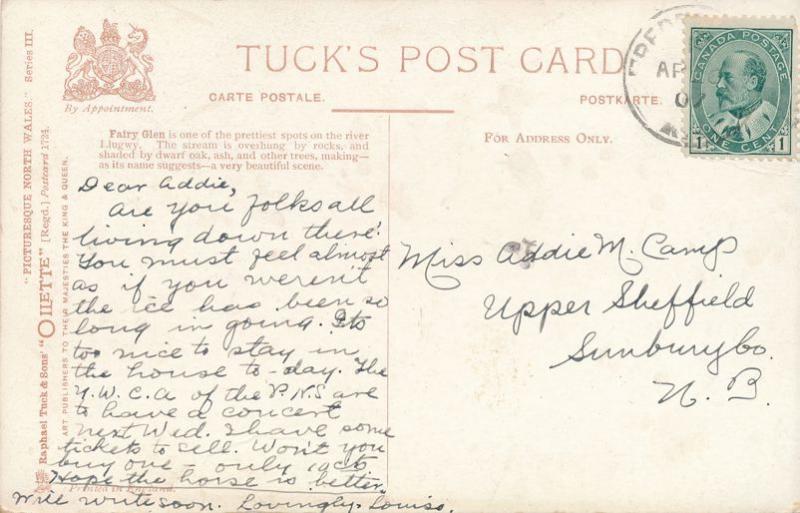 TUCK'S POST CARD
CARTE POSTALE. POSTKARTE.
By Appointment.
"PICTURESQUE NORTH WALES." Series III.
Raphael Tuck & Sons' "OILETTE" [Regd.] Postcard 1724.
ART PUBLISHERS TO THEIR MAJESTIES THE KING & QUEEN.
Fairy Glen is one of the prettiest spots on the river
Llugwy. The stream is overhung by rocks, and
shaded by dwarf oak, ash, and other trees, making—
as its name suggests—a very beautiful scene.
FOR ADDRESS ONLY.
CANADA POSTAGE
1 ONE CENT 1
AP
Dear Addie,
Are you folks all
living down there?
You must feel almost
as if you weren't
the ice has been so
long in going. Its
too nice to stay in
the house to-day. The
Y.W.C.A of the P.N.S are
to have a concert
next Wed. I have some
tickets to sell. Won't you
buy one - only 10cts
Hope the horse is better.
Will write soon. Lovingly Louise.
Printed in England.
Miss Addie M. Camp
Upper Sheffield
Sunbury Co.
N. B.